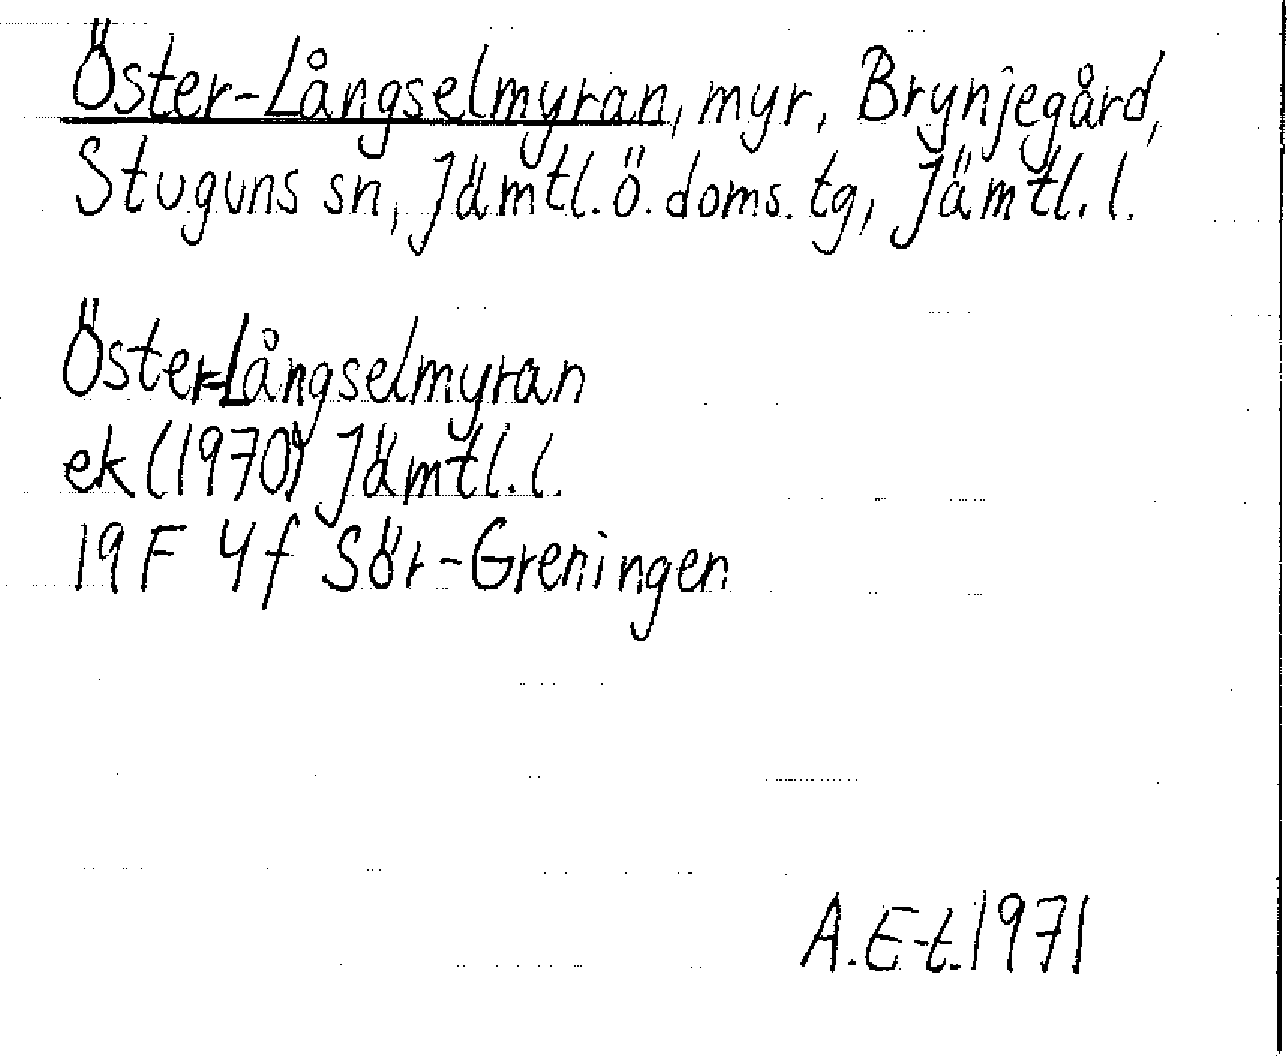 Öster-Långselmyran, myr, Brynjegård,
Stuguns sn, Jämtl. ö. doms. tg, Jämtl. l.
Öster-Långselmyran
ek (1970) Jämtl. l.
19F 4f Sör-Greningen
A. E-t. 1971